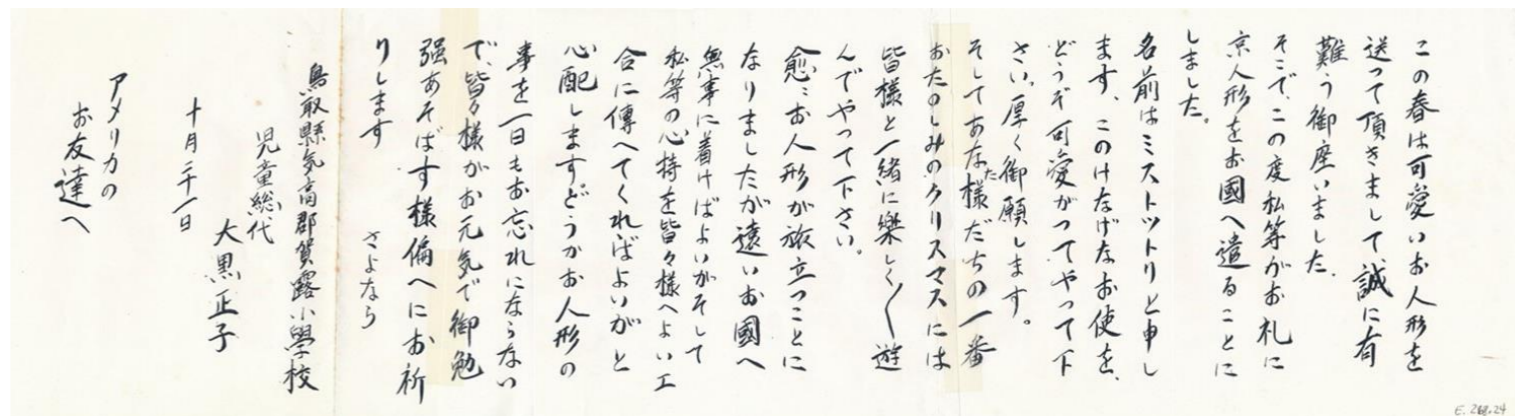 この春は可愛いお人形を
送って頂きまして誠に有
難う御座いました
そこで、この度私等がお礼に
京人形をお國へ遣ることに
しました。
名前はミストットリと申し
ます、このけなげなお使を、
どうぞ可愛がってやって下
さい。厚く御願します。
そしてあなた様だちの一番
おたのしみのクリスマスには
皆様と一緒に樂しく〱遊
んでやって下さい。
愈〻お人形が旅立つことに
なりましたが遠いお國へ
無事に着けばよいがそして
私等の心持を皆々様へよい工
合に傳へてくれればよいがと
心配しますどうかお人形の
事を一日もお忘れにならない
で、皆々様がお元気で御勉
強あそばす様偏へにお祈
りします
さよなら
鳥取縣気高郡賀露小學校
児童総代
大黒正子
十月二十一日
アメリカの
お友達へ
E. 268.24